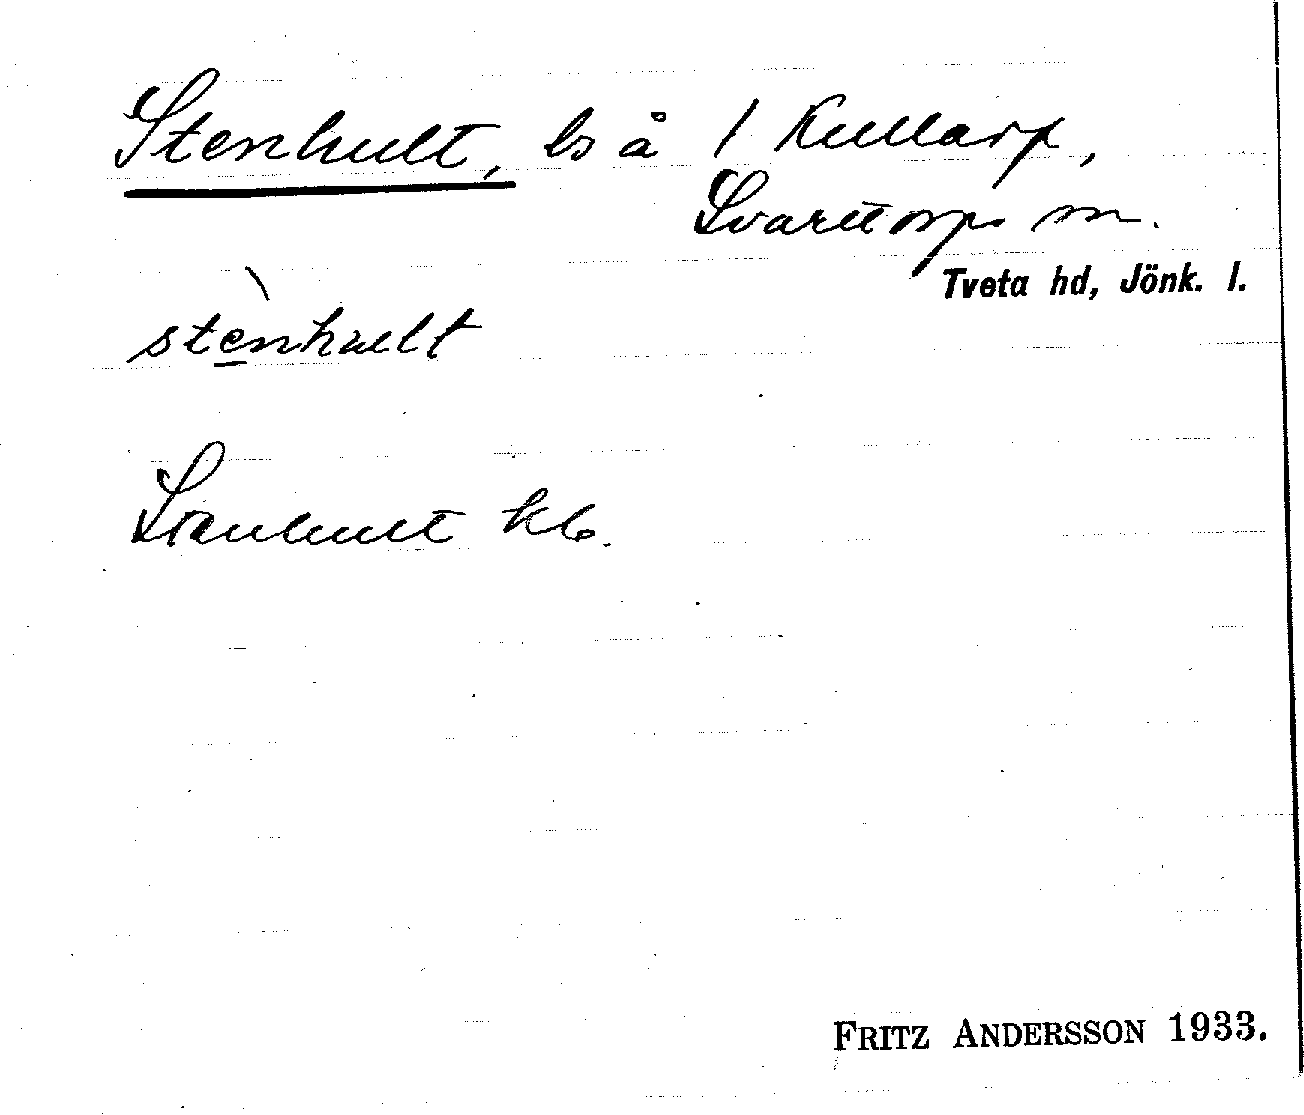 Stenhult, ls å 1 Kullarp,
Svarttorps sn.
Tveta hd, Jönk. l.
stènhult
Stenhult kb.
FRITZ ANDERSSON 1933.